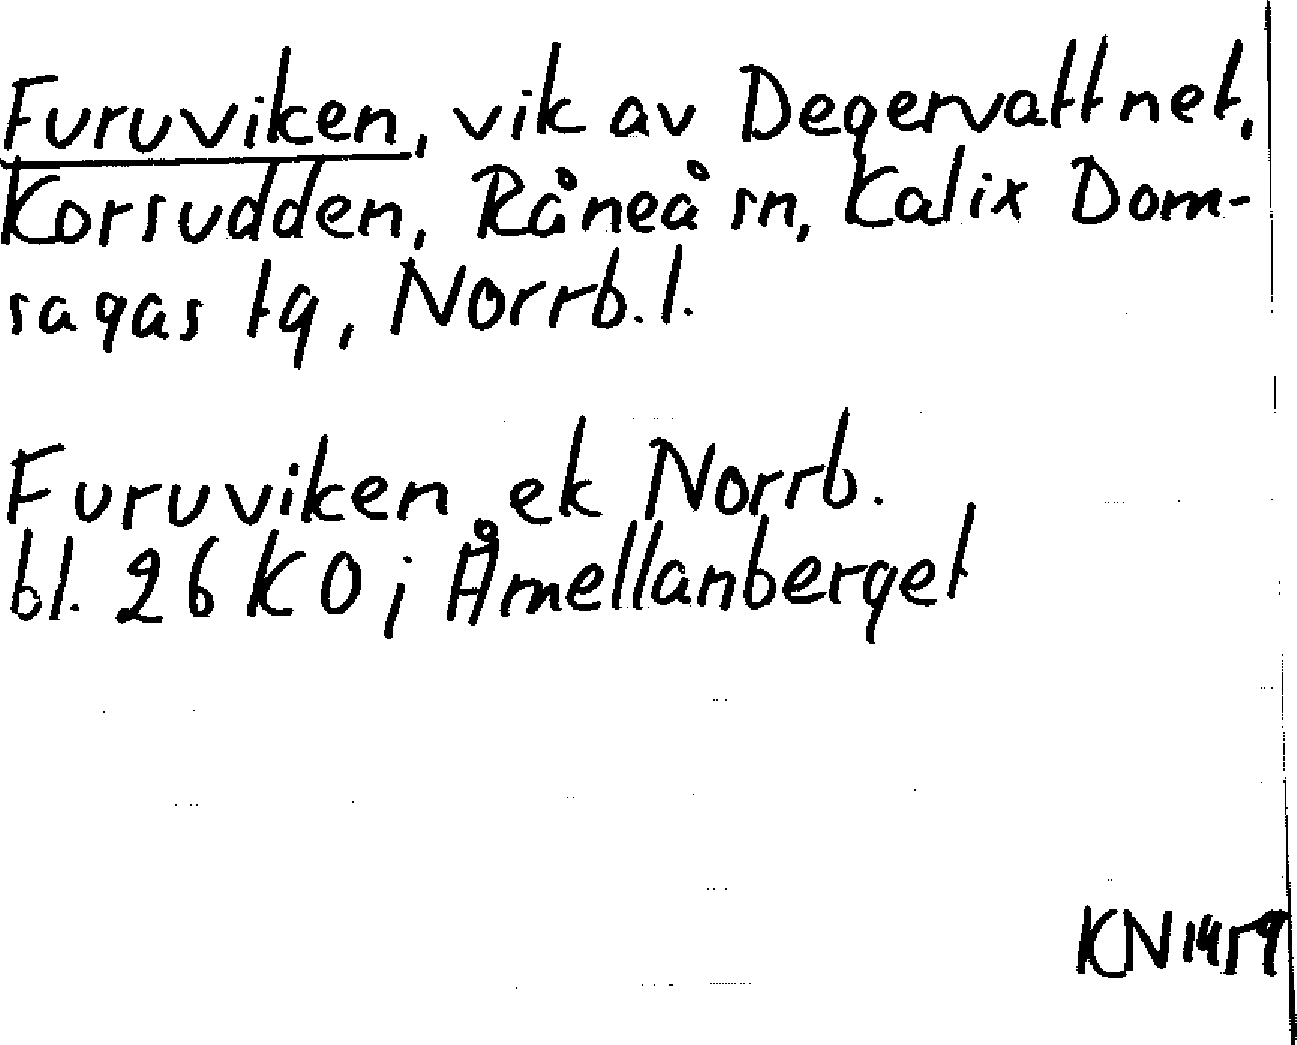 Furuviken, vik av Degervattnet,
Korsudden, Råneå sn, Kalix Dom-
sagas tg, Norrb. l.
Furuviken ek Norrb.
bl. 26 K0; Åmellanberget
KN 1959